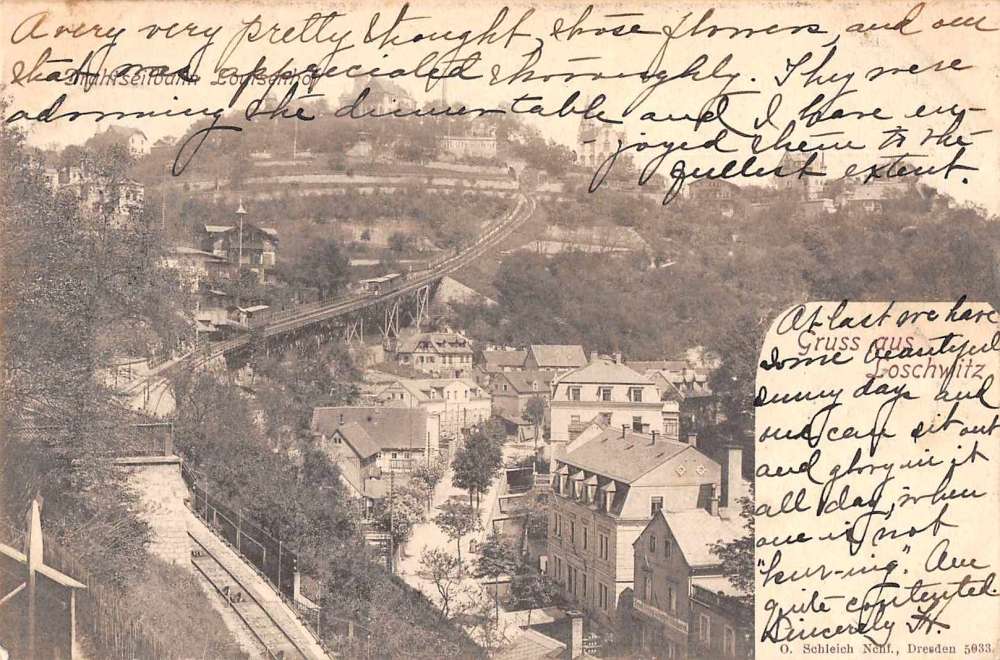 A very very pretty thought, those flowers, and our
shad was appreciated thoroughly. They were
Drahtseilbahn Louisenhof
adorning the dinner table and I have en-
joyed them to the
fullest extent.
At last we have
Gruss aus
some beautiful
Loschwitz
sunny days and
one can sit out
and glory in it
all day, when
one is not
"kur-ing". Am
quite contented.
Sincerely H.
O. Schleich Nchf., Dresden 5033